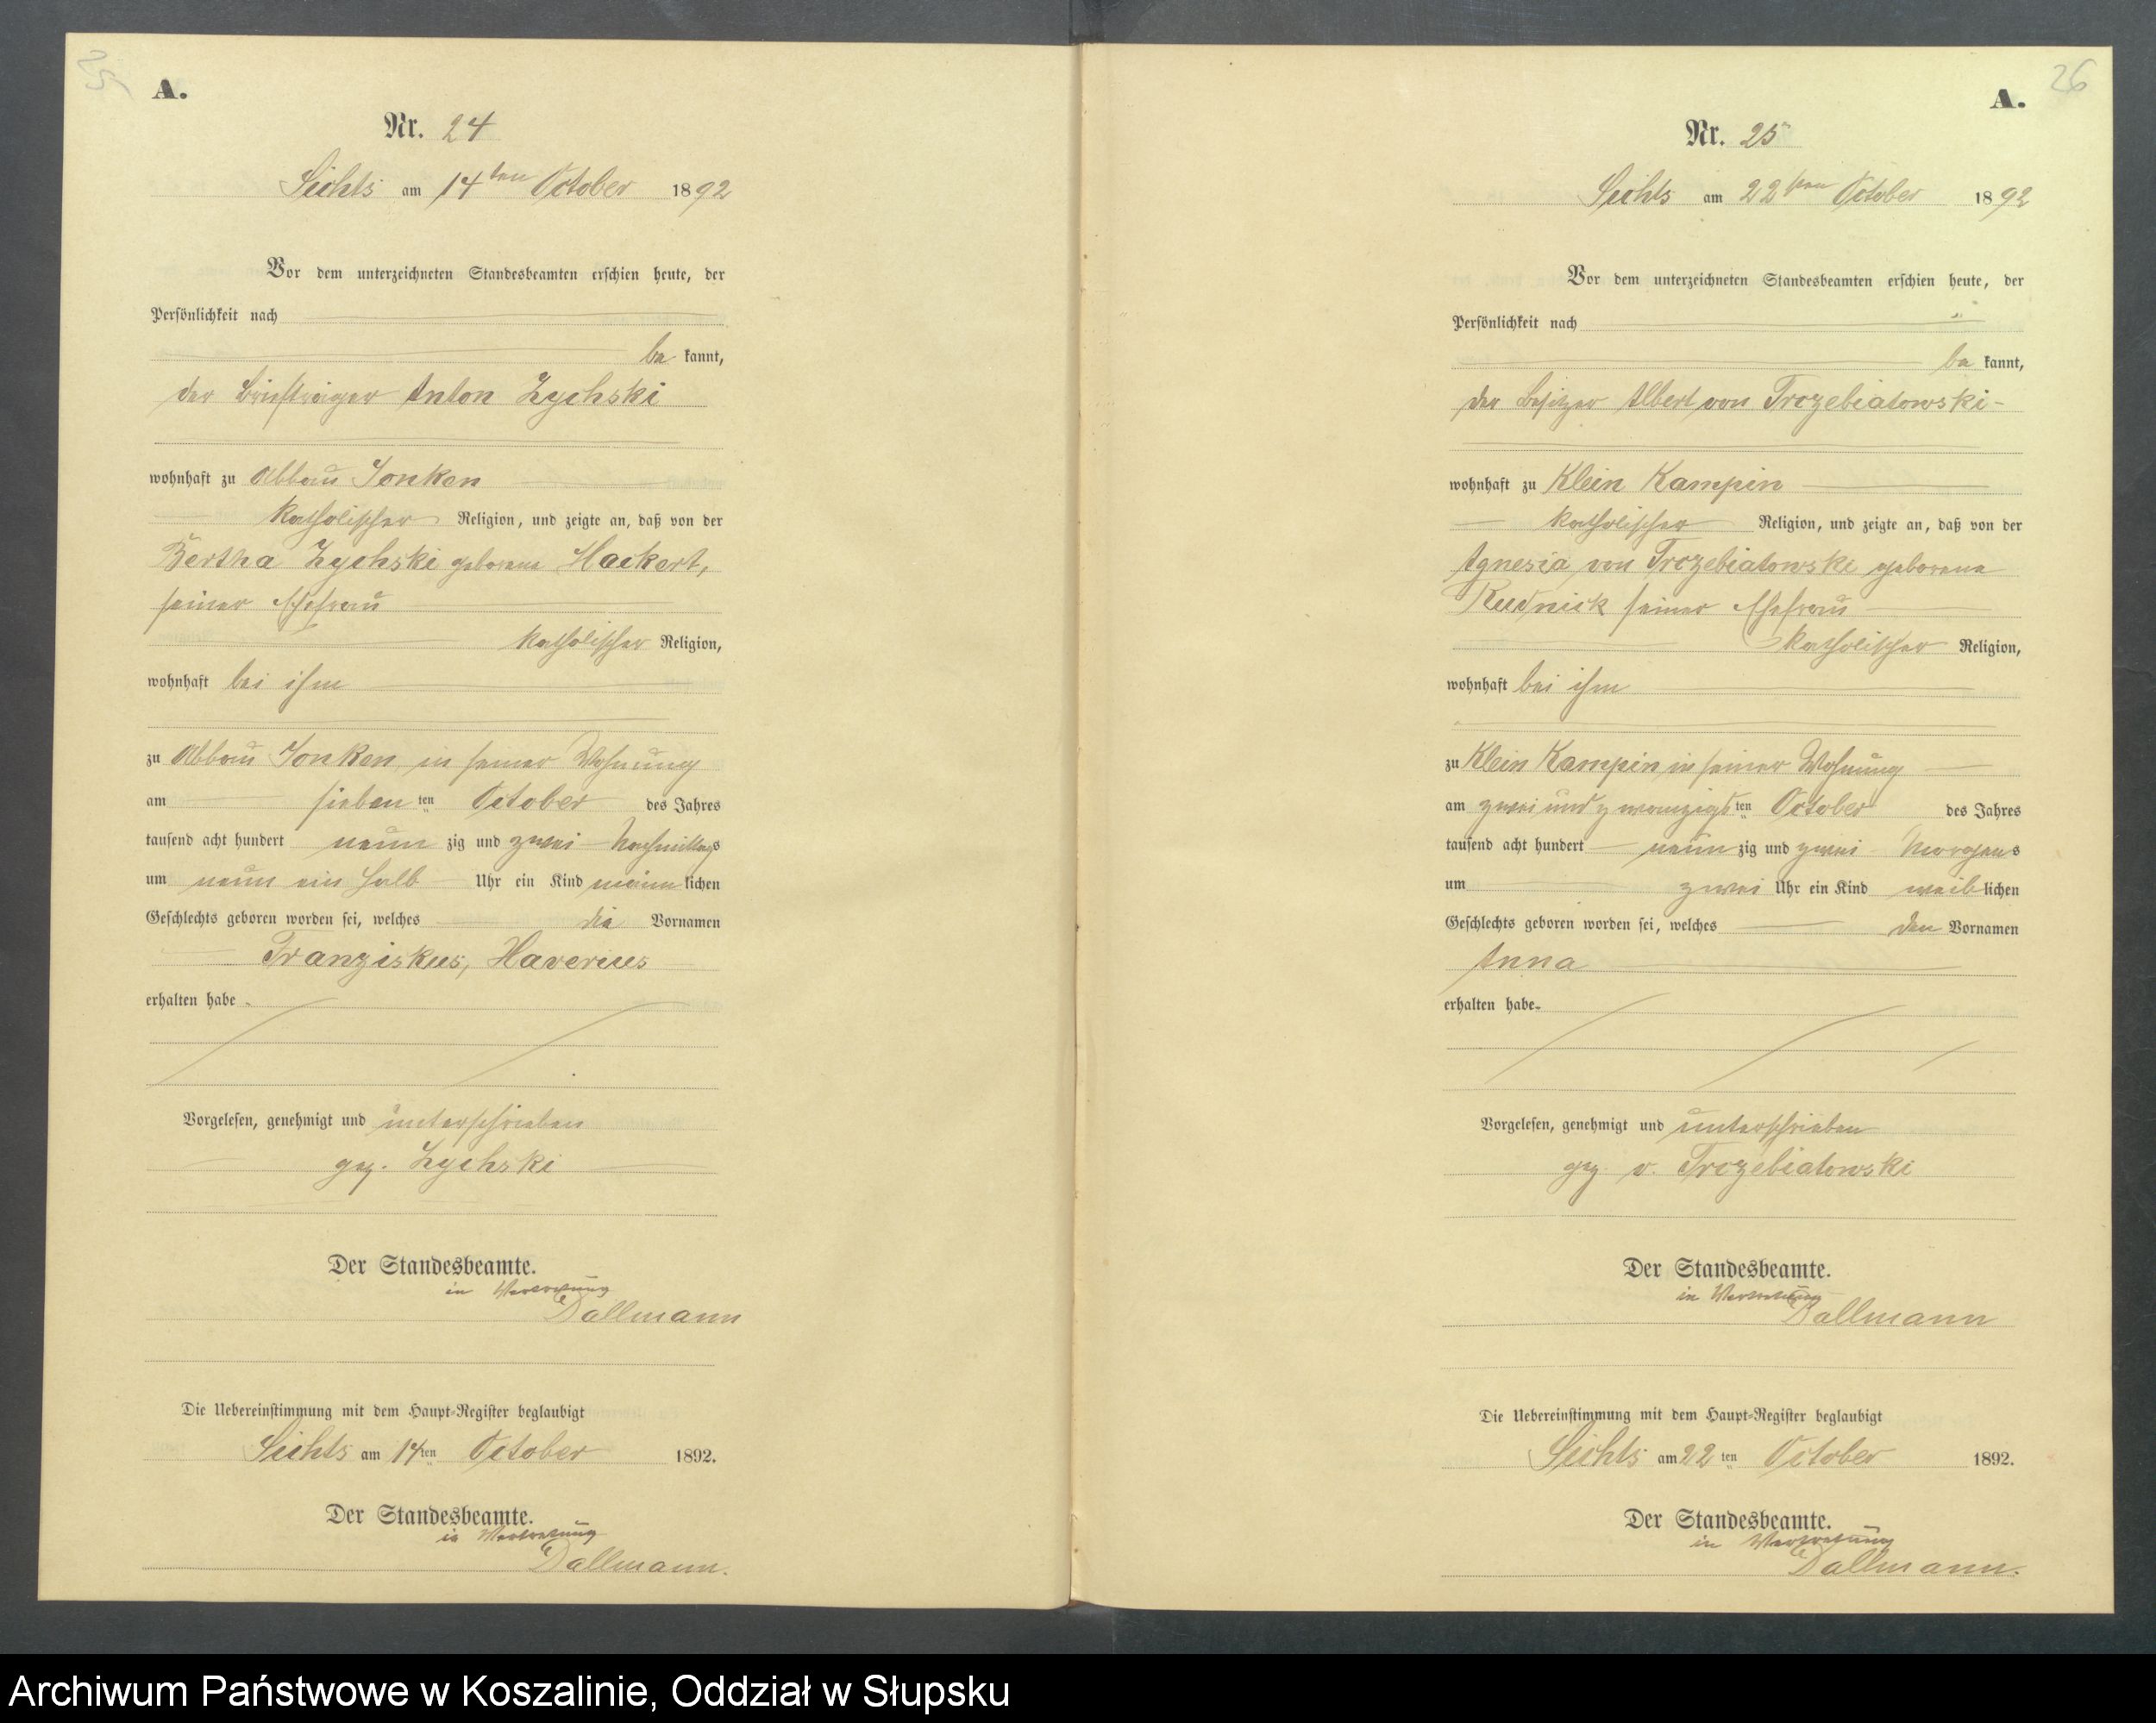 A.
Nr. 24
Lichts am 14ten October 1892
Vor dem unterzeichneten Standesbeamten erschien heute, der
Persönlichkeit nach
be kannt,
der Briefträger Anton Zychski
wohnhaft zu Abbau Sonken
katholischer Religion, und zeigte an, daß von der
Bertha Zychski geborene Hackert,
seiner Ehefrau
katholischer Religion,
wohnhaft bei ihm
zu Abbau Sonken, in seiner Wohnung
am sieben ten October des Jahres
tausend acht hundert neun zig und zwei Nachmittags
um neun ein halb Uhr ein Kind männ lichen
Geschlechts geboren worden sei, welches die Vornamen
Franziskus, Xaverius
erhalten habe.
Vorgelesen, genehmigt und unterschrieben
gez. Zychski
Der Standesbeamte.
in Vertretung
Dallmann
Die Uebereinstimmung mit dem Haupt-Register beglaubigt
Lichts am 14ten October 1892.
Der Standesbeamte.
in Vertretung
Dallmann.
26
A.
Nr. 25
Lichts am 22ten October 1892
Vor dem unterzeichneten Standesbeamten erschien heute, der
Persönlichkeit nach
be kannt,
der Besitzer Albert von Trczebiatowski
wohnhaft zu Klein Kampin
katholischer Religion, und zeigte an, daß von der
Agnesia von Trczebiatowski geborene
Rudnick seiner Ehefrau
katholischer Religion,
wohnhaft bei ihm
zu Klein Kampin in seiner Wohnung
am zwei und zwanzigsten October des Jahres
tausend acht hundert neun zig und zwei Morgens
um zwei Uhr ein Kind weib lichen
Geschlechts geboren worden sei, welches den Vornamen
Anna
erhalten habe.
Vorgelesen, genehmigt und unterschrieben
gez. v. Trczebiatowski
Der Standesbeamte.
in Vertretung
Dallmann
Die Uebereinstimmung mit dem Haupt-Register beglaubigt
Lichts am 22ten October 1892.
Der Standesbeamte.
in Vertretung
Dallmann.
Archiwum Państwowe w Koszalinie, Oddział w Słupsku